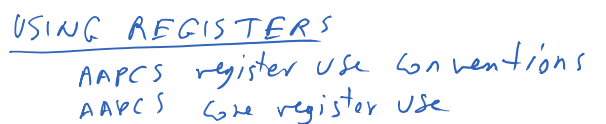 USING REGISTERS
AAPCS register use conventions
AAPCS core register use